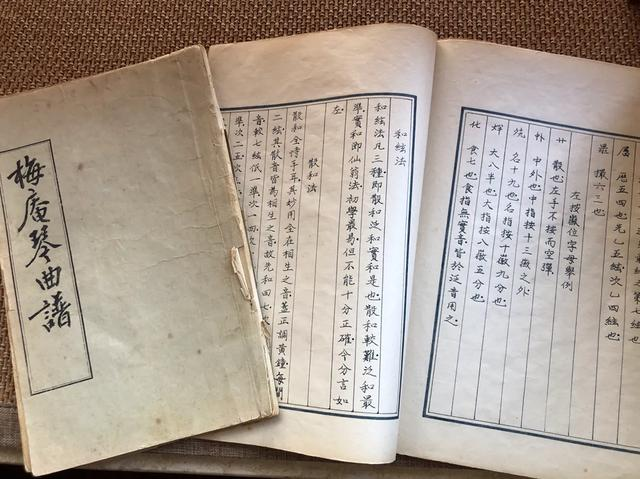 梅庵琴曲譜
歷五四也先乙五絃次乙四絃也
撮六三也
左按徽位字母舉例
散也左手不按而空彈
中外也中指按十三徽之外
名十九也名指按十徽九分也
大八半也大指按八徽五分也
食七也食指無實音皆於泛音用之
和絃法
和絃法凡三種即散和泛和實和是也散和較難泛和最
準實和即仙翁法初學最易但不能十分正確今分言如
左
散和法
散和全恃手耳其妙用全在相生之音蓋正調黃鐘每間
二絃其散音皆為相生之音故先和四七
音較七絃低一準次一四次
準次二五次